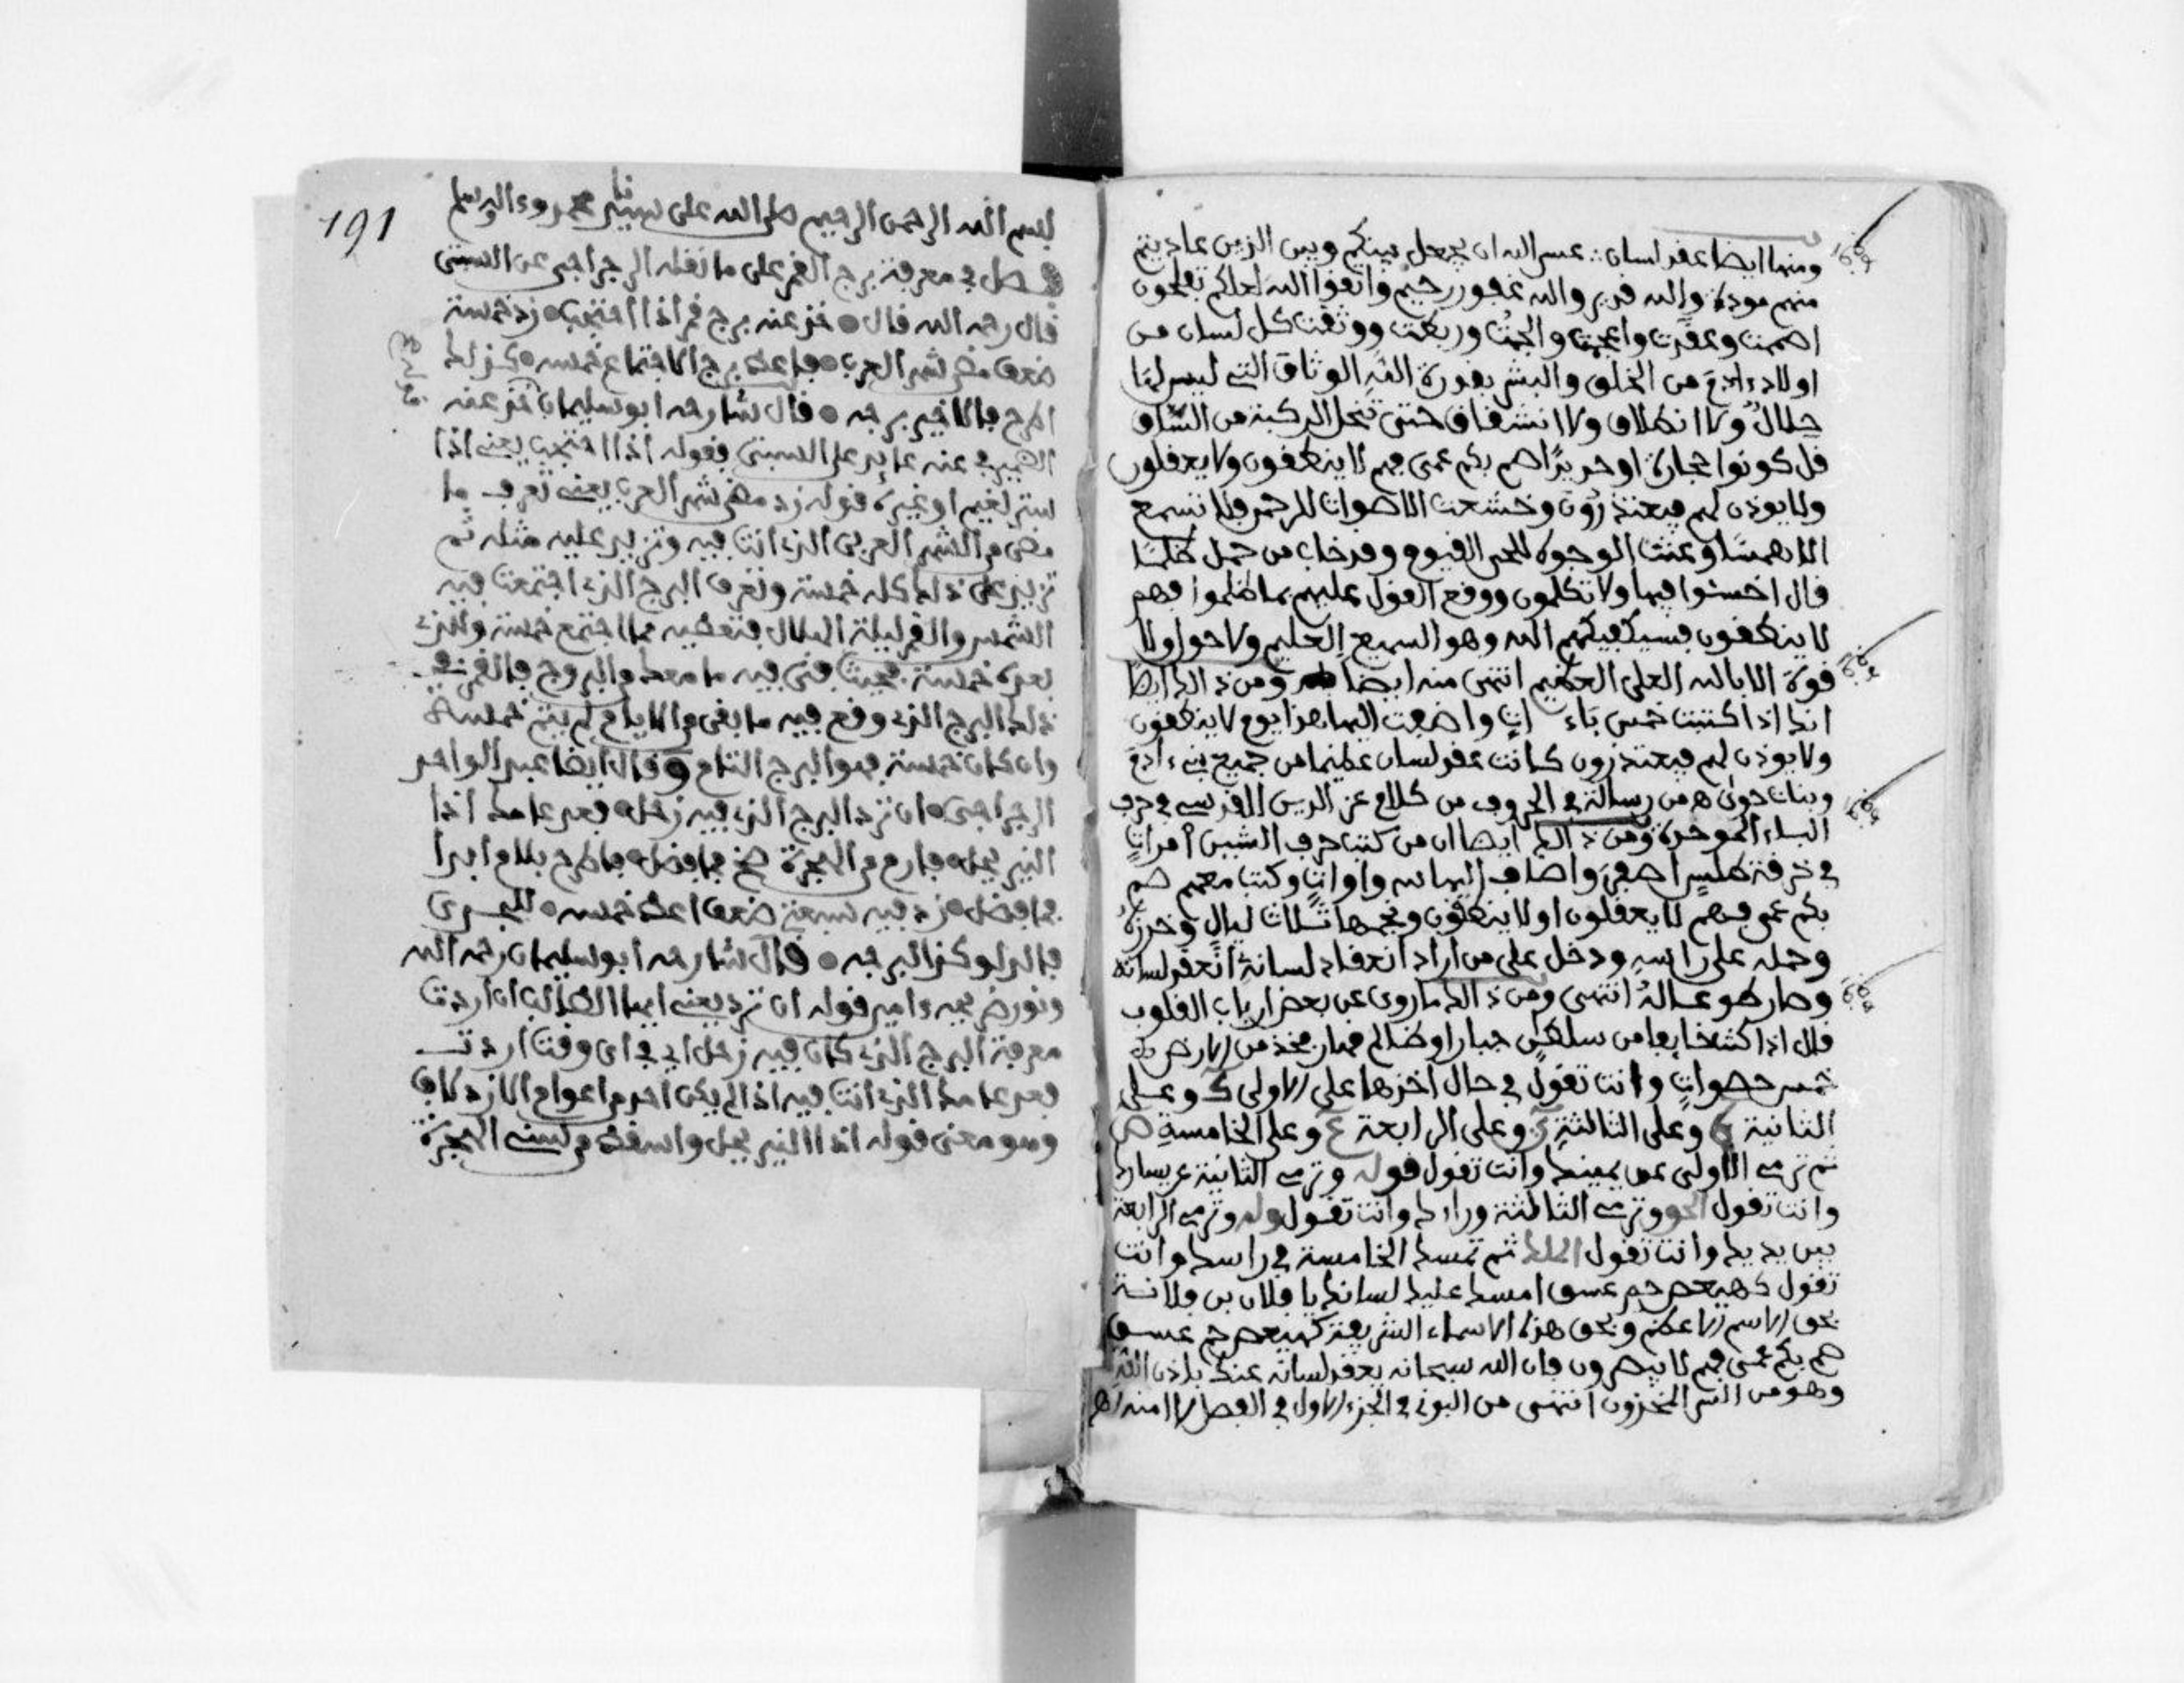 ومنها ايضا عقد لسان ∴ عسى الله ان يجعل بينكم وبين الذين عاديتم
منهم مودة والله قدير والله غفور رحيم واتقوا الله لعلكم تفلحون
اصممت وعقدت واعجمت والجمت وربطت ووثقت كل لسان من
اولاد ءادم من الخلق والبشر بقدرة الله الوثاق التي ليس لها
حلال ولا انطلاق ولا انشقاق حتى تنحل الركبة من الساق
قل كونوا حجارة او حديدا صم بكم عمى فهم لا ينطقون ولا يعقلون
ولا يوذن لهم فيعتذرون وخشعت الاصوات للرحمن فلا تسمع
الا همسا وعنت الوجوه للحي القيوم وقد خاب من حمل ظلما
قال اخسئوا فيها ولا تكلمون ووقع القول عليهم بما ظلموا فهم
لا ينطقون فسيكفيكهم الله وهو السميع العليم ولا حول ولا
قوة الا بالله العلي العظيم انتهى منه ايضا ومن ذالك ايضا
انك اذا كتبت خمس باءات واضفت اليها هذا يوم لا ينطقون
ولا يوذن لهم فيعتذرون كانت عقد لسان عظيما من جميع بني ءادم
وبنات حوى من رسالة في الحروف من كلام عز الدين المقدسي في حرف
الباء الموحدة ومن ذالك ايضا ان من كتب حرف الشين امرات
في خرقة طلس اصفر واضاف اليها واوات وكتب معهم صم
بكم عمى فهم لا يعقلون او لا ينطقون ونجمها ثلاث ليال وخرزه
وحمله على راسه ودخل على من اراد انعقاد لسانه انعقد لسانه
وصار طوع ساله انتهى ومن ذالك ما روى عن بعض ارباب القلوب
قال اذا كنت خايفا من سلطان جبار او ظالم فخذ من الارض
خمس حصوات وانت تقول في حال اخذها على الاولى ك وعلى
الثانية ه وعلى الثالثة ي وعلى الرابعة ع وعلى الخامسة ص
ثم ترمي الاولى عن يمينك وانت تقول قوله وترمي الثانية عن يسارك
وانت تقول الحق وترمي الثالثة وراءك وانت تقول وله وترمي الرابعة
بين يديك وانت تقول الملك ثم تمسك الخامسة في راسك وانت
تقول كهيعص حم عسق امسك عليك لسانك يا فلان بن فلانة
بحق الاسم الاعظم وبحق هذه الاسماء الشريفة كهيعص حم عسق
صم بكم عمى فهم لا يبصرون فان الله سبحانه يعقد لسانه عنك باذن الله
وهو من السر المخزون انتهى من البوني في الجزء الاول في الفصل
191
بسم الله الرحمن الرحيم صلى الله على سيدنا محمد وءاله وسلم
فصل في معرفة برج القمر على ما نقله الرجراجي عن السبتي
قال رحمه الله قال خذ عنه برج قمر اذا احتجب زد خمسة
ضعف مضى شهر العرب فاعط برج الاجتماع خمسه كذلك
اطرح فالاخير برجه قال شارحه ابو سليمان خذ عنه
الضمير في عنه عايد على السبتي فقوله اذا احتجب يعني اذا
ستر لغيم او غيره قوله زد مضى شهر العرب يعني تعرف ما
مضى من الشهر العربي الذي انت فيه وتزيد عليه مثله ثم
تزيد على ذلك كله خمسة وتعرف البرج الذي اجتمعت فيه
الشمس والقمر ليلة الهلال فتعطيه مما اجتمع خمسة وللذي
بعده خمسة فحيث فنى فيه ما معك من البروج فالقمر في
ذلك البرج الذي وقع فيه ما بقى من الايام لم يتم خمسة
وان كان خمسة فهو البرج التام وقال ايضا عبد الواحد
الرجراجي ان ترد البرج الذي فيه زحل فبعد عامك اذا
النير يحل فارم من الهجرة ضخ فما فضل فاطرح بلام ابدا
فما فضل زد فيه سبعة ضعف اعط خمسه للجدي
فالدلو كذا البرجه قال شارحه ابو سليمان رحمه الله
ونور ضريحه ءامين قوله ان ترد يعني ايها الطالب ان اردت
معرفة البرج الذي كان فيه زحل اي في اي وقت اردت
فبعد عامك الذي انت فيه اذا لم يكن احد من اعوام الازدلاف
وهو معنى قوله اذا النير يحل واسقط من سني الهجرة